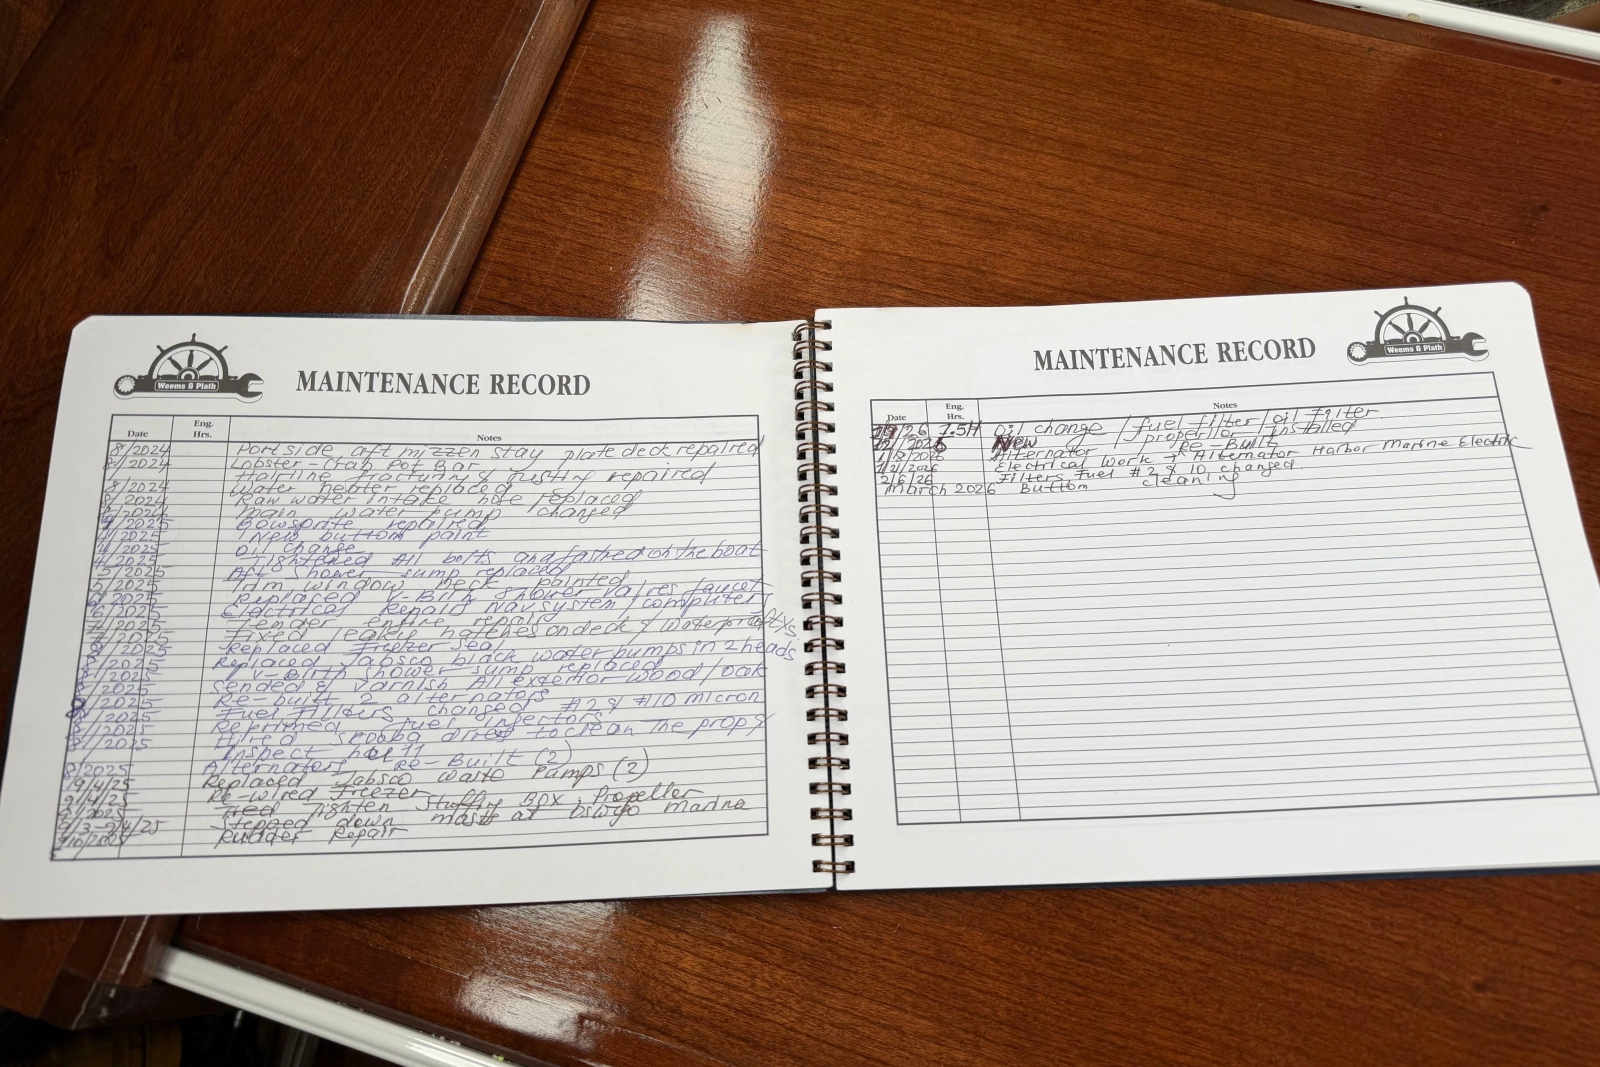 Weems & Plath
MAINTENANCE RECORD
Date Eng. Hrs. Notes
8/2024 Portside aft mizzen stay plate deck repaired
8/2024 Lobster-Crab Pot Bar
Hairline fracturing & rusting repaired
8/2024 Water heater replaced
8/2024 Raw water intake hose replaced
8/2024 Main water pump changed
4/2025 Bowsprite repaired
4/2025 New buttom paint
4/2025 Oil change
4/2025 Tightened All bolts and fastned on the boat
5/2025 Aft shower sump replaced
5/2025 Trim window Deck painted
6/2025 Replaced V-Birth shower valves faucet
6/2025 Electrical Repairs Nav system/computers
7/2025 Tender entire repair
7/2025 Fixed leaky hatches on deck & waterproof
7/2025 Replaced Freezer Seal
8/2025 Replaced Jabsco black water pumps in 2 heads
8/2025 V-Birth shower sump replaced
8/2025 Sended & Varnish All exterior wood/oak
8/2025 Re-built 2 alternators
8/2025 Fuel Filters changed #2 & #10 micron
8/2025 fuel injectors
8/2025 Hired scooba diver to clean the prop &
Inspect hull
8/2025 Alternators Re-Built (2)
9/4/25 Replaced Jabsco waste Pumps (2)
9/4/25 Re-wired Freezer
Tighten Stuffing Box, Propeller
Stepped down mast at Oswego Marina
Rudder Repair
MAINTENANCE RECORD
Weems & Plath
Date Eng. Hrs. Notes
Oil change / fuel filter / oil filter
New propellor / installed
1/8/2026 Alternator Re-Built
1/2/2026 Electrical work Alternator Harbor Marine Electric
2/6/26 Filters fuel #2 & 10 changed
March 2026 Buttom cleaning